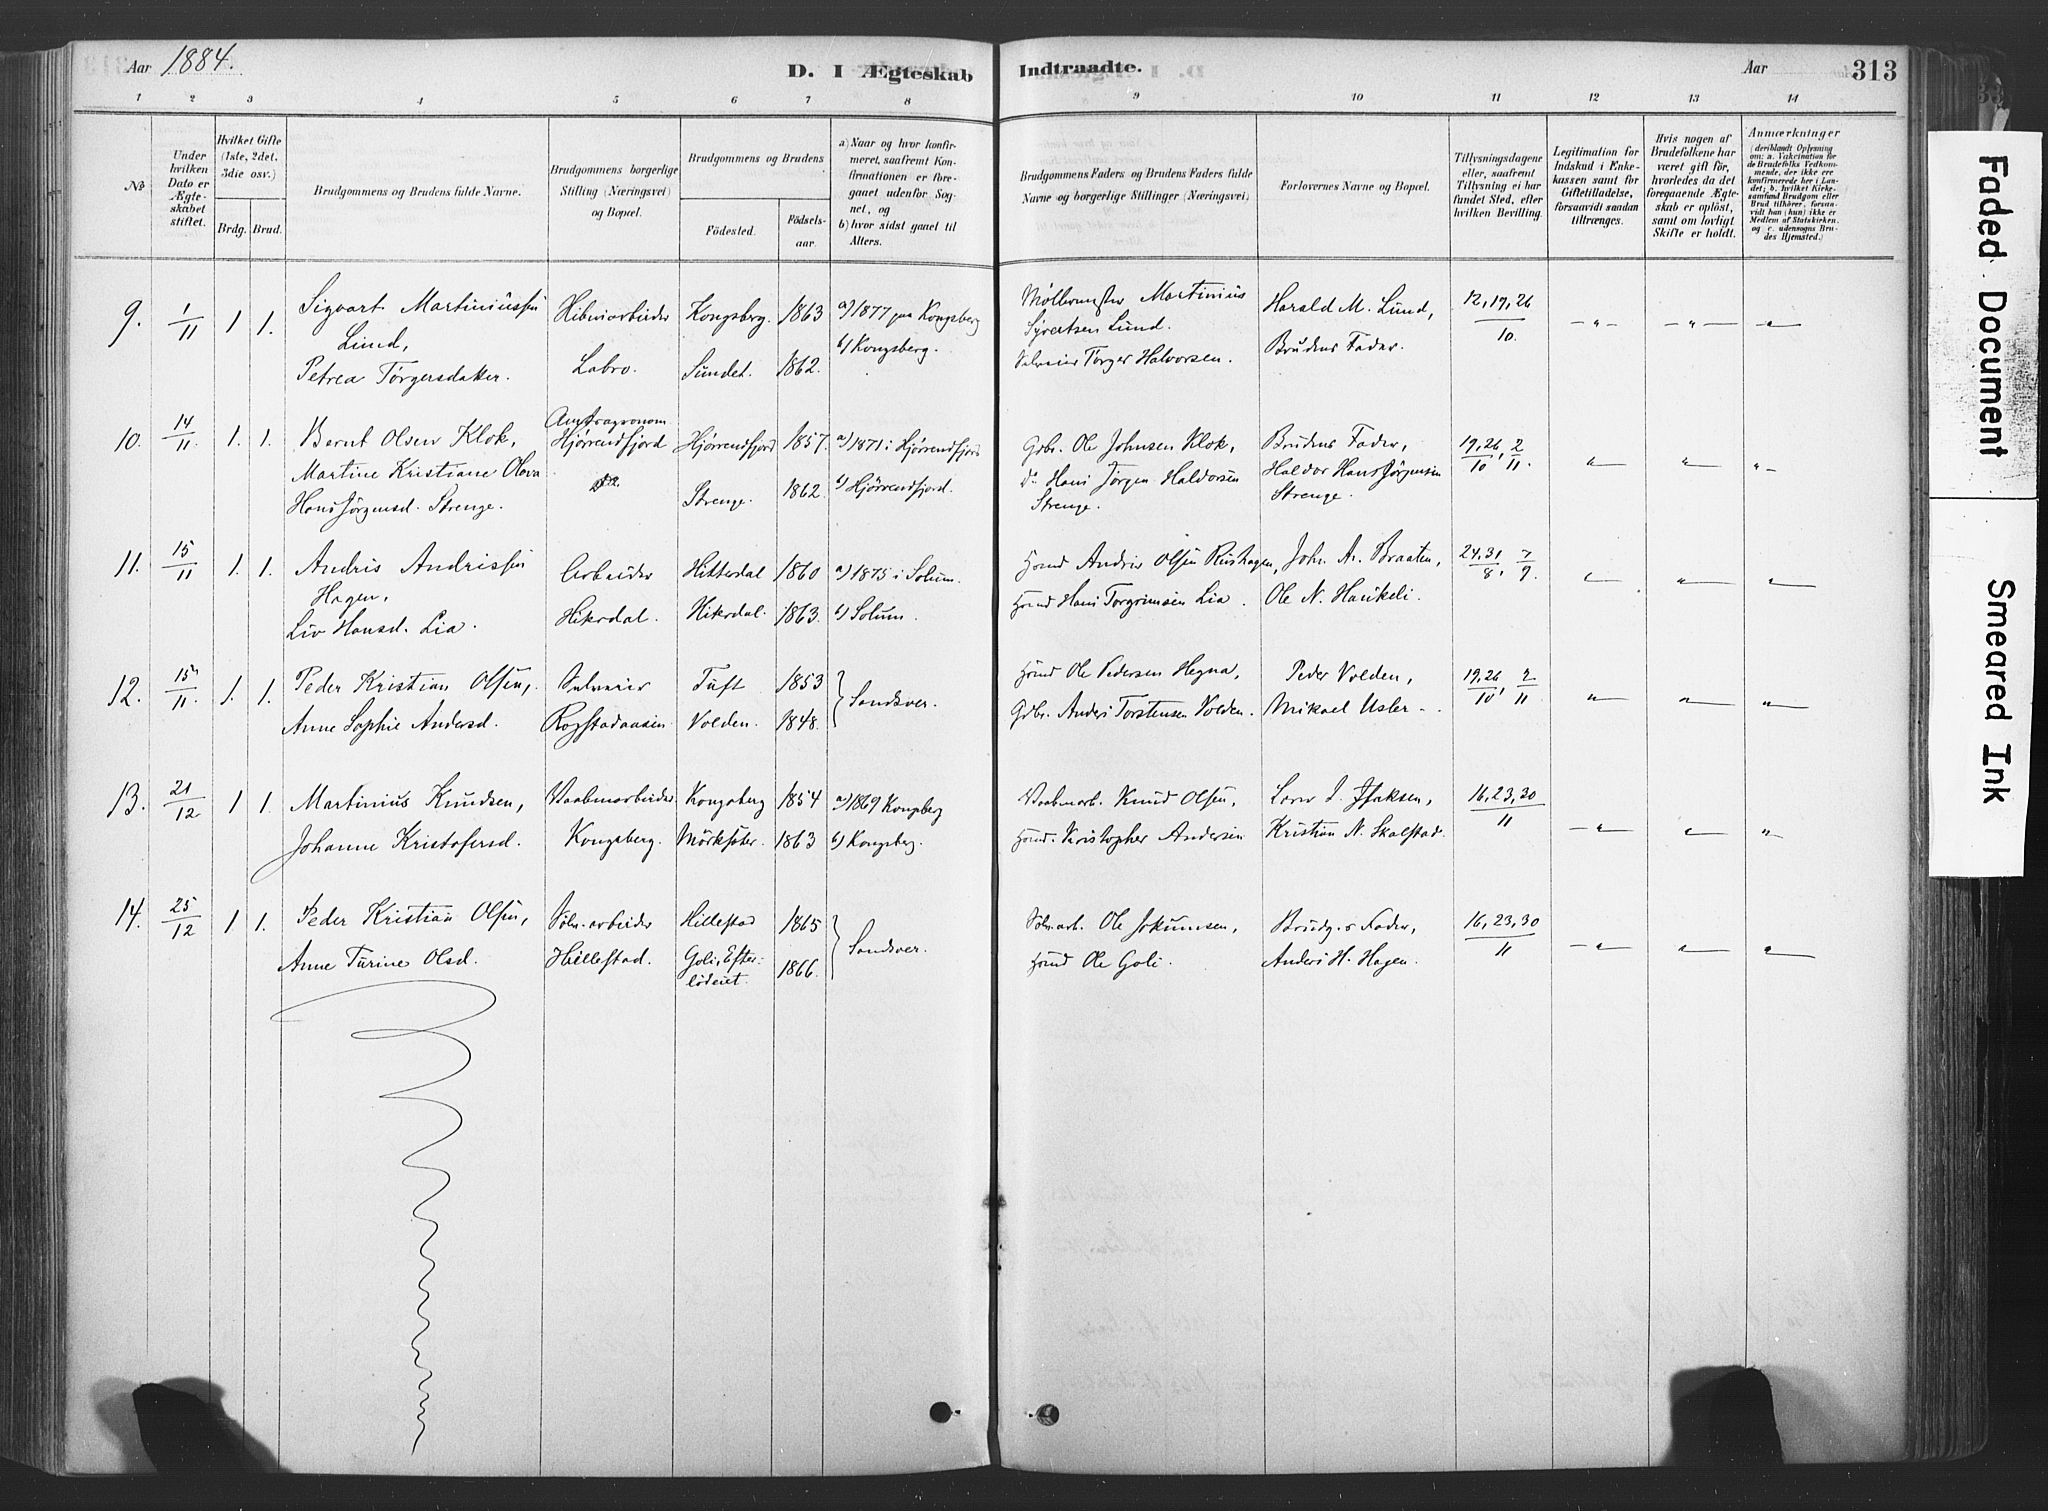 Aar 1884.
D. I Ægteskab Indtraadte.
Aar
313
1 2 3 4 5 6 7 8 9 10 11 12 13 14
№
Under hvilken Dato er Ægteskabet stiftet.
Hvilket Gifte (1ste, 2det, 3die osv.)
Brdg. Brud.
Brudgommens og Brudens fulde Navne.
Brudgommens borgerlige Stilling (Næringsvei) og Bopæl.
Brudgommens og Brudens
Födested.
Födselsaar.
a) Naar og hvor konfirmeret, saafremt Konfirmationen er foregaaet udenfor Sognet, og
b) hvor sidst gaaet til Alters.
Brudgommens Faders og Brudens Faders fulde Navne og borgerlige Stillinger (Næringsvei)
Forlovernes Navne og Bopæl.
Tillysningsdagene eller, saafremt Tillysning ei har fundet Sted, efter hvilken Bevilling.
Legitimation for Indskud i Enkekassen samt for Giftetilladelse, forsaavidt saadan tiltrænges.
Hvis nogen af Brudefolkene har været gift för, hvorledes da det foregaaende Ægteskab er oplöst, samt om lovligt Skifte er holdt.
Anmærkninger (deriblandt Oplysning om: a. Vakcination for de Brudefolks Vedkommende, der ikke ere konfirmerede her i Landet; b. hvilket Kirkesamfund Brudgom eller Brud tilhörer, forsaavidt han (hun) ikke er Medlem af Statskirken, og c. udensogns Brudes Hjemsted.)
9. 1/11 1 1. Sigvart Martiniussen Lund,
Petrea Törgersdatter.
Labro.
Kongsberg. 1863
Sundet. 1862.
a) 1877 paa Kongsberg
b) Kongsberg.
Martinius Syvertsen Lund.
Törger Halvorsen.
Harald M. Lund,
Brudens Fader.
12, 19, 26/10.
10. 14/11. 1. 1. Bernt Olsen Klok,
Martine Kristiane Olava
Hans Jörgensd. Strenge.
Amtsagronom
Hjörrendfjord
Hjörrendfjord 1857.
Strenge. 1862.
a) 1871 i Hjörrendfjord
b) Hjörrendfjord.
Gdbr. Ole Johnsen Klok,
do Hans Jörgen Haldorsen
Strenge.
Brudens Fader,
Haldor Hans Jörgensen
Strenge.
19, 26/10, 2/11.
11. 15/11 1. 1. Andris Andrissen
Hagen,
Liv Hansd. Lia.
Arbeider
Hiterdal.
Hitterdal 1860
Hiterdal. 1863.
a) 1875 i Solum.
b) Solum.
Hmd Andris Olsen Rushagen,
Hmd Hans Torgrimsen Lia.
Joh. A. Braaten,
Ole N. Haukeli.
24, 31/8, 7/9.
12. 15/11. 1. 1. Peder Kristian Olsen,
Anne Sophie Andersd.
Rogstadaasen
Tuft 1853
Volden. 1848.
Sandsver.
Hmd Ole Pedersen Hegna,
Gdbr. Anders Torstensen Volden.
Peder Volden,
Mikael Usler
19, 26/10, 2/11
13. 21/12 1 1. Martinius Knudsen,
Johanne Kristofersd.
Vaabenarbeider
Kongsberg.
Kongsberg 1854
1863
a) 1869 Kongsberg
b) Kongsberg.
Vaabenarb. Knud Olsen,
Hmd. Kristopher Andersen
Isaksen,
Kristian N. Skalstad.
16, 23, 30/11
14. 25/12 1 1. Peder Kristian Olsen,
Anne Turine Olsd.
Sölv.arbeider
Hillestad.
Hillestad 1865
Goli, Efterlödeiet. 1866.
Sandsver.
Sölvarb. Ole Jokumsen,
Hmd Ole Goli.
Brudg.s Fader,
Anders H. Hagen.
16, 23, 30/11
Faded Document
Smeared Ink